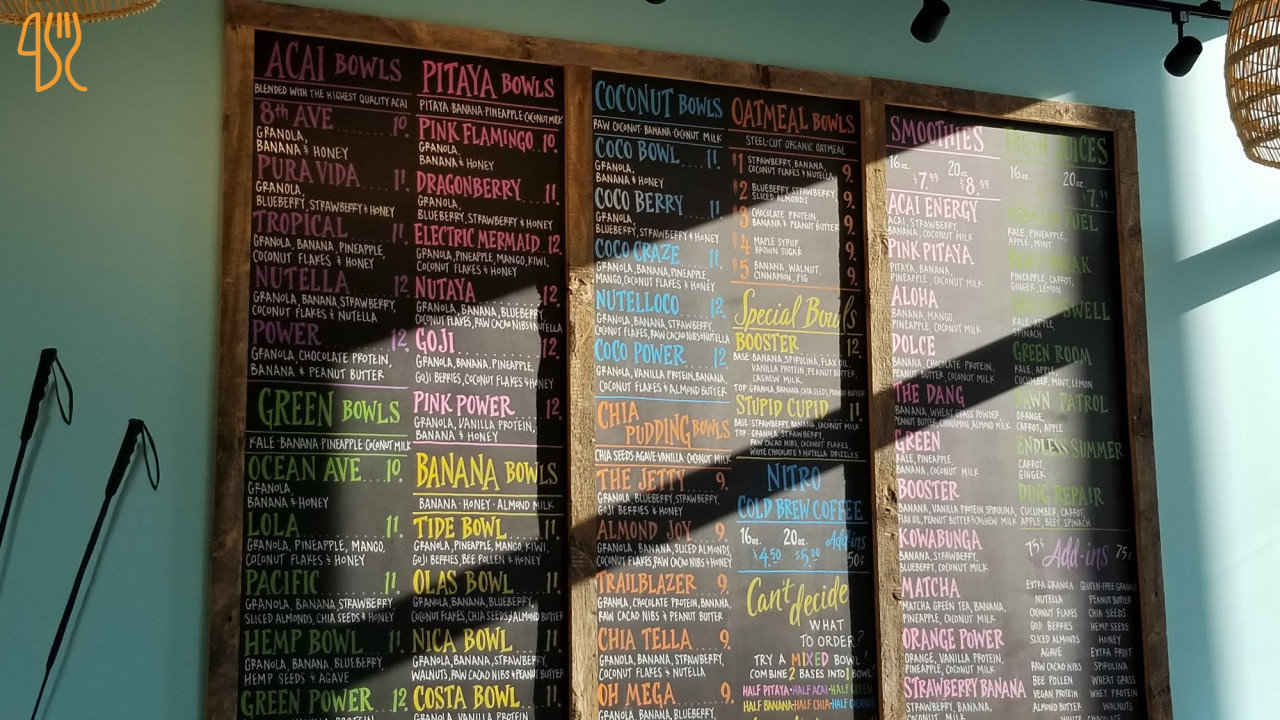 ACAI BOWLS
BLENDED WITH THE HIGHEST QUALITY ACAI
8th AVE 10.
GRANOLA,
BANANA & HONEY
PURA VIDA 11.
GRANOLA,
BLUEBERRY, STRAWBERRY & HONEY
TROPICAL 11.
GRANOLA, BANANA, PINEAPPLE,
COCONUT FLAKES & HONEY
NUTELLA 12
GRANOLA, BANANA, STRAWBERRY,
COCONUT FLAKES & NUTELLA
POWER 12
GRANOLA, CHOCOLATE PROTEIN,
BANANA & PEANUT BUTTER
GREEN BOWLS
KALE·BANANA·PINEAPPLE·COCONUT MILK
OCEAN AVE 10.
GRANOLA,
BANANA & HONEY
LOLA 11.
GRANOLA, PINEAPPLE, MANGO,
COCONUT FLAKES & HONEY
PACIFIC 11.
GRANOLA, BANANA, STRAWBERRY,
SLICED ALMONDS, CHIA SEEDS & HONEY
HEMP BOWL 11.
GRANOLA, BANANA, BLUEBERRY,
HEMP SEEDS & AGAVE
GREEN POWER 12
PITAYA BOWLS
PITAYA·BANANA·PINEAPPLE·COCONUT MILK
PINK FLAMINGO 10.
GRANOLA,
BANANA & HONEY
DRAGONBERRY 11.
GRANOLA,
BLUEBERRY, STRAWBERRY & HONEY
ELECTRIC MERMAID 12.
GRANOLA, PINEAPPLE, MANGO, KIWI,
COCONUT FLAKES & HONEY
NUTAYA 12.
GRANOLA, BANANA, BLUEBERRY,
COCONUT FLAKES, RAW CACAO NIBS & NUTELLA
GOJI 12.
GRANOLA, BANANA, PINEAPPLE,
GOJI BERRIES, COCONUT FLAKES & HONEY
PINK POWER 12.
GRANOLA, VANILLA PROTEIN,
BANANA & HONEY
BANANA BOWLS
BANANA·HONEY·ALMOND MILK
TIDE BOWL 11.
GRANOLA, PINEAPPLE, MANGO, KIWI,
GOJI BERRIES, BEE POLLEN & HONEY
OLAS BOWL 11.
GRANOLA, BANANA, BLUEBERRY,
COCONUT FLAKES, CHIA SEEDS & ALMOND BUTTER
NICA BOWL 11.
GRANOLA, BANANA, STRAWBERRY,
WALNUTS, RAW CACAO NIBS & PEANUT BUTTER
COSTA BOWL 11.
GRANOLA, VANILLA PROTEIN
COCONUT BOWLS
RAW COCONUT·BANANA·COCONUT MILK
COCO BOWL 11.
GRANOLA,
BANANA & HONEY
COCO BERRY 11
GRANOLA,
BLUEBERRY, STRAWBERRY & HONEY
COCO CRAZE 11.
GRANOLA, BANANA, PINEAPPLE,
MANGO, COCONUT FLAKES & HONEY
NUTELLOCO 12.
GRANOLA, BANANA, STRAWBERRY,
COCONUT FLAKES, RAW CACAO NIBS & NUTELLA
COCO POWER 12
GRANOLA, VANILLA PROTEIN, BANANA,
COCONUT FLAKES & ALMOND BUTTER
CHIA
PUDDING BOWLS
CHIA SEEDS·AGAVE·VANILLA·COCONUT MILK
THE JETTY 9.
GRANOLA, BLUEBERRY, STRAWBERRY,
GOJI BERRIES & HONEY
ALMOND JOY 9.
GRANOLA, BANANA, SLICED ALMONDS,
COCONUT FLAKES, RAW CACAO NIBS & HONEY
TRAILBLAZER 9.
GRANOLA, CHOCOLATE PROTEIN, BANANA,
RAW CACAO NIBS & PEANUT BUTTER
CHIA TELLA 9.
GRANOLA, BANANA, STRAWBERRY,
COCONUT FLAKES & NUTELLA
OH MEGA 9.
GRANOLA, BANANA, BLUEBERRY,
OATMEAL BOWLS
STEEL-CUT ORGANIC OATMEAL
#1 STRAWBERRY, BANANA,
COCONUT FLAKES & NUTELLA 9.
#2 BLUEBERRY, STRAWBERRY,
SLICED ALMONDS 9.
#3 CHOCOLATE PROTEIN,
BANANA & PEANUT BUTTER 9.
#4 MAPLE SYRUP
BROWN SUGAR 9.
#5 BANANA, WALNUT,
CINNAMON, FIG 9.
Special Bowls
BOOSTER 12.
BASE: BANANA, SPIRULINA, FLAX OIL,
VANILLA PROTEIN, PEANUT BUTTER,
CASHEW MILK
TOP: GRANOLA, BANANA, CHIA SEEDS, PEANUT BUTTER
STUPID CUPID 11.
BASE: STRAWBERRY, BANANA, COCONUT MILK
TOP: GRANOLA, STRAWBERRY,
RAW CACAO NIBS, COCONUT FLAKES,
WHITE CHOCOLATE & NUTELLA DRIZZLES
NITRO
COLD BREW COFFEE
16oz. 20oz. Add-ins
$4.50 $5.00 50¢
Can't decide
WHAT
TO ORDER?
TRY A MIXED BOWL!
COMBINE 2 BASES INTO 1 BOWL
HALF PITAYA·HALF ACAI·HALF GREEN
HALF BANANA·HALF CHIA·HALF COCONUT
SMOOTHIES
16oz. 20oz.
$7.99 $8.99
ACAI ENERGY
ACAI, STRAWBERRY,
BANANA, COCONUT MILK
PINK PITAYA
PITAYA, BANANA
PINEAPPLE, COCONUT MILK
ALOHA
BANANA, MANGO,
PINEAPPLE, COCONUT MILK
DOLCE
BANANA, CHOCOLATE PROTEIN,
PEANUT BUTTER, COCONUT MILK
THE DANG
BANANA, WHEAT GRASS POWDER,
PEANUT BUTTER, CINNAMON, ALMOND MILK
GREEN
KALE, PINEAPPLE,
BANANA, COCONUT MILK
BOOSTER
BANANA, VANILLA PROTEIN, SPIRULINA,
FLAX OIL, PEANUT BUTTER & CASHEW MILK
KOWABUNGA
BANANA, STRAWBERRY,
BLUEBERRY, COCONUT MILK
MATCHA
MATCHA GREEN TEA, BANANA,
PINEAPPLE, COCONUT MILK
ORANGE POWER
ORANGE, VANILLA PROTEIN,
PINEAPPLE, COCONUT MILK
STRAWBERRY BANANA
STRAWBERRY, BANANA,
COCONUT MILK
FRESH JUICES
16oz. 20oz.
$7.99
FUEL
KALE, PINEAPPLE,
APPLE, MINT
PINEAPPLE, CARROT,
GINGER, LEMON
SWELL
KALE, APPLE,
SPINACH
GREEN ROOM
KALE, APPLE,
CUCUMBER, MINT, LEMON
DAWN PATROL
ORANGE,
CARROT, APPLE
ENDLESS SUMMER
CARROT,
GINGER
DING REPAIR
CUCUMBER, CARROT,
APPLE, BEET, SPINACH
75¢ Add-ins 75¢
EXTRA GRANOLA GLUTEN-FREE GRANOLA
NUTELLA PEANUT BUTTER
COCONUT FLAKES CHIA SEEDS
GOJI BERRIES HEMP SEEDS
SLICED ALMONDS HONEY
AGAVE EXTRA FRUIT
RAW CACAO NIBS SPIRULINA
BEE POLLEN WHEAT GRASS
VEGAN PROTEIN WHEY PROTEIN
ALMOND BUTTER WALNUTS
WHITE CHOCOLATE